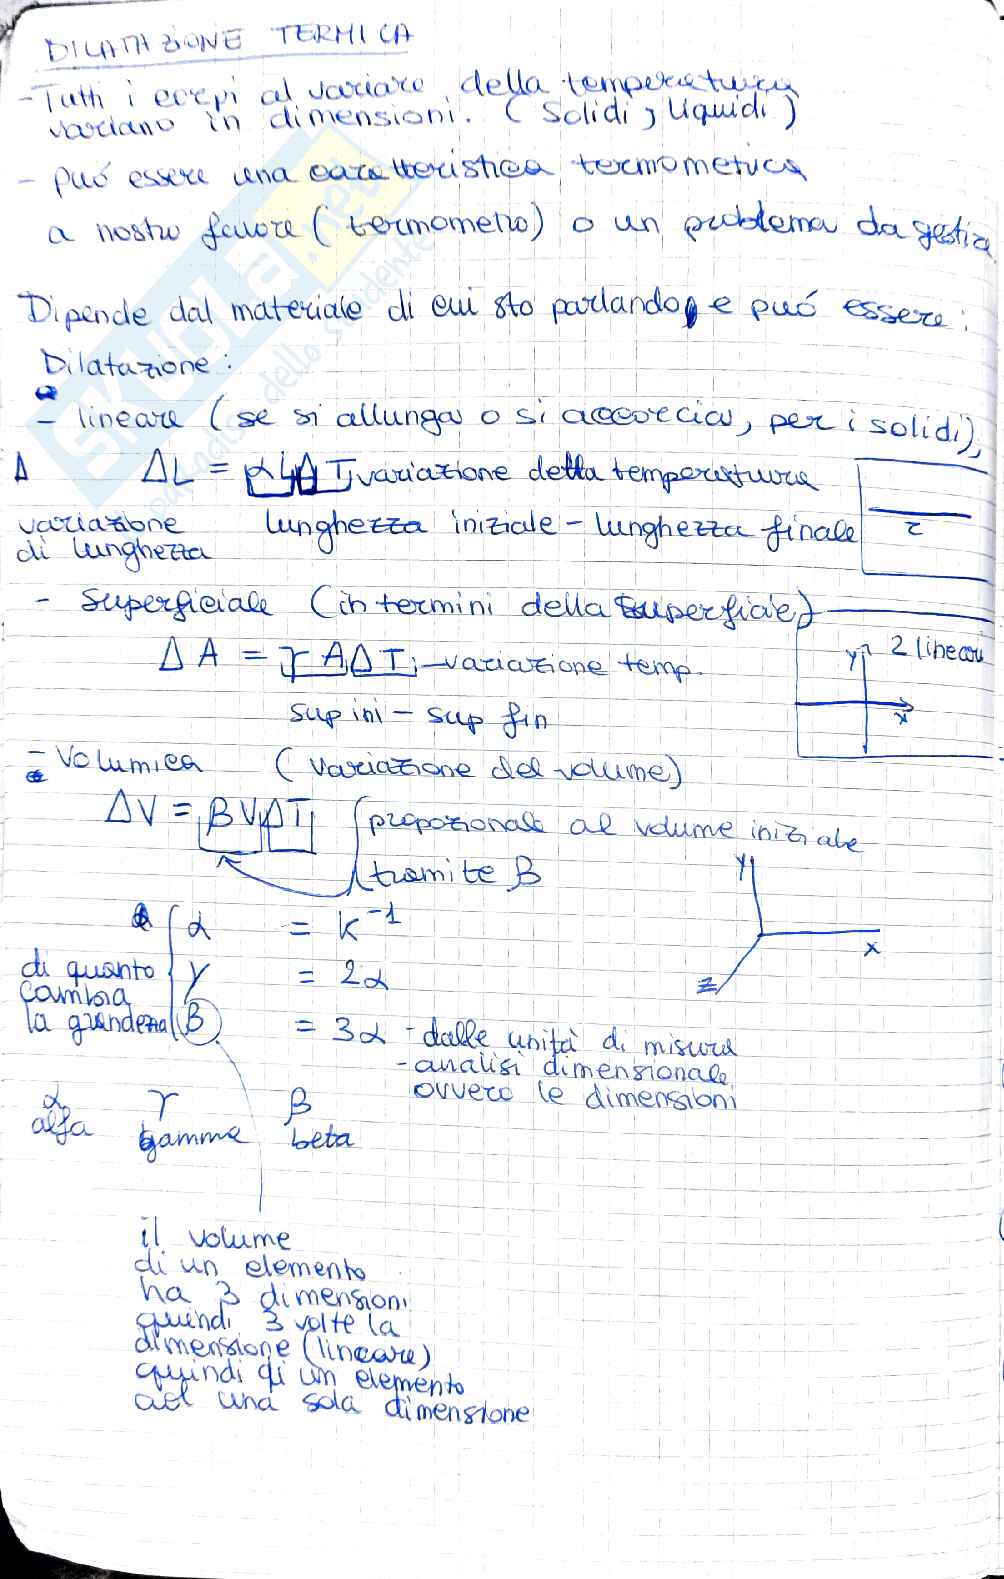 DILATAZIONE TERMICA
- Tutti i corpi al variare della temperatura
variano in dimensioni. (Solidi, liquidi)
- può essere una caratteristica termometrica
a nostro favore (termometro) o un problema da gestire
Dipende dal materiale di cui sto parlando e può essere:
Dilatazione:
- lineare (se si allunga o si accorcia, per i solidi),
Δ ΔL = α L Δ T variazione della temperatura
variazione lunghezza iniziale - lunghezza finale
di lunghezza
- superficiale (in termini della superficie)
2 lineari
y
x
Δ A = γ A Δ T - variazione temp.
sup ini - sup fin
- Volumica (variazione del volume)
ΔV = β V Δ T (proporzionale al volume iniziale
tramite β
y
x
z
α = K⁻¹
γ = 2α
β = 3α - dalle unità di misura
- analisi dimensionale
ovvero le dimensioni
di quanto
cambia
la grandezza
α γ β
alfa gamma beta
il volume
di un elemento
ha 3 dimensioni
quindi 3 volte la
dimensione (lineare)
quindi di un elemento
ad una sola dimensione
SKUOLA.net
paradiso dello studente